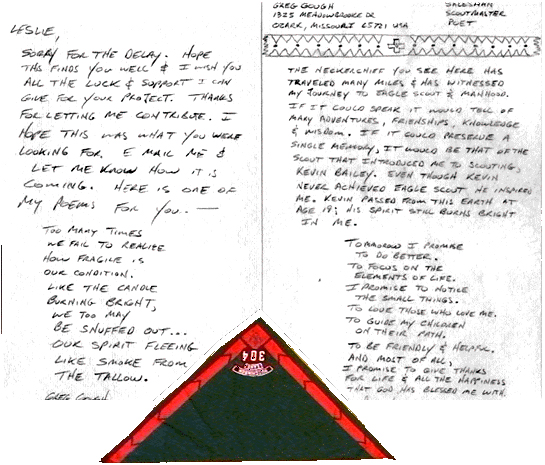 LESLIE,
SORRY FOR THE DELAY. HOPE
THIS FINDS YOU WELL & I WISH YOU
ALL THE LUCK & SUPPORT I CAN
GIVE FOR YOUR PROJECT. THANKS
FOR LETTING ME CONTRIBUTE. I
HOPE THIS WAS WHAT YOU WERE
LOOKING FOR. E MAIL ME &
LET ME KNOW HOW IT IS
COMING. HERE IS ONE OF
MY POEMS FOR YOU.. —
TOO MANY TIMES
WE FAIL TO REALIZE
HOW FRAGILE IS
OUR CONDITION.
LIKE THE CANDLE
BURNING BRIGHT,
WE TOO MAY
BE SNUFFED OUT...
OUR SPIRIT FLEEING
LIKE SMOKE FROM
THE TALLOW.
GREG GOUGH
GREG GOUGH
1325 MEADOWBROOKE DR
OZARK, MISSOURI 65721 USA
SALESMAN
SCOUTMASTER
POET
THE NECKERCHIEF YOU SEE HERE HAS
TRAVELED MANY MILES & HAS WITNESSED
MY JOURNEY TO EAGLE SCOUT & MANHOOD.
IF IT COULD SPEAK IT WOULD TELL OF
MANY ADVENTURES, FRIENSHIPS, KNOWLEDGE
& WISDOM. IF IT COULD PRESERVE A
SINGLE MEMORY, IT WOULD BE THAT OF THE
SCOUT THAT INTRODUCED ME TO SCOUTING,
KEVIN BAILEY. EVEN THOUGH KEVIN
NEVER ACHIEVED EAGLE SCOUT HE INSPIRED
ME. KEVIN PASSED FROM THIS EARTH AT
AGE 19; HIS SPIRIT STILL BURNS BRIGHT
IN ME.
TOMAOROW I PROMISE
TO DO BETTER.
TO FOCUS ON THE
ELEMENTS OF LIFE.
I PROMISE TO NOTICE
THE SMALL THINGS.
TO LOVE THOSE WHO LOVE ME.
TO GUIDE MY CHILDREN
ON THEIR PATH.
TO BE FRIENDLY & HELPFUL.
AND MOST OF ALL,
I PROMISE TO GIVE THANKS
FOR LIFE & ALL THE HAPPINESS
THAT GOD HAS BLESSED ME WITH.
304